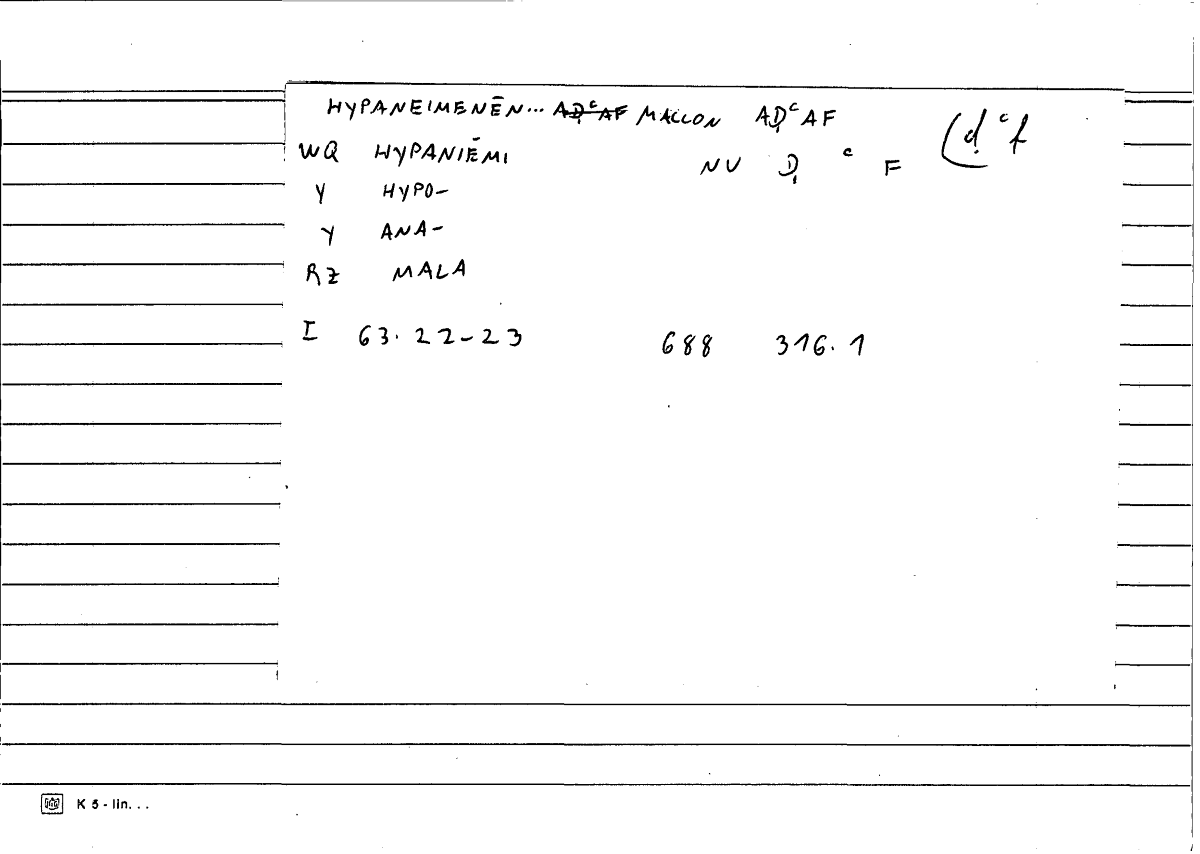 HYPANEIMENĒN... A̶Ḍ̶ᶜ̶A̶F̶ MALLON AḌᶜAF
WQ HYPANIĒMI NV Ḍ ᶜ F (ḍᶜf
Y HYPO-
Y ANA-
RZ MALA
I 63.22-23 688 316.1
K 5 - lin. . .